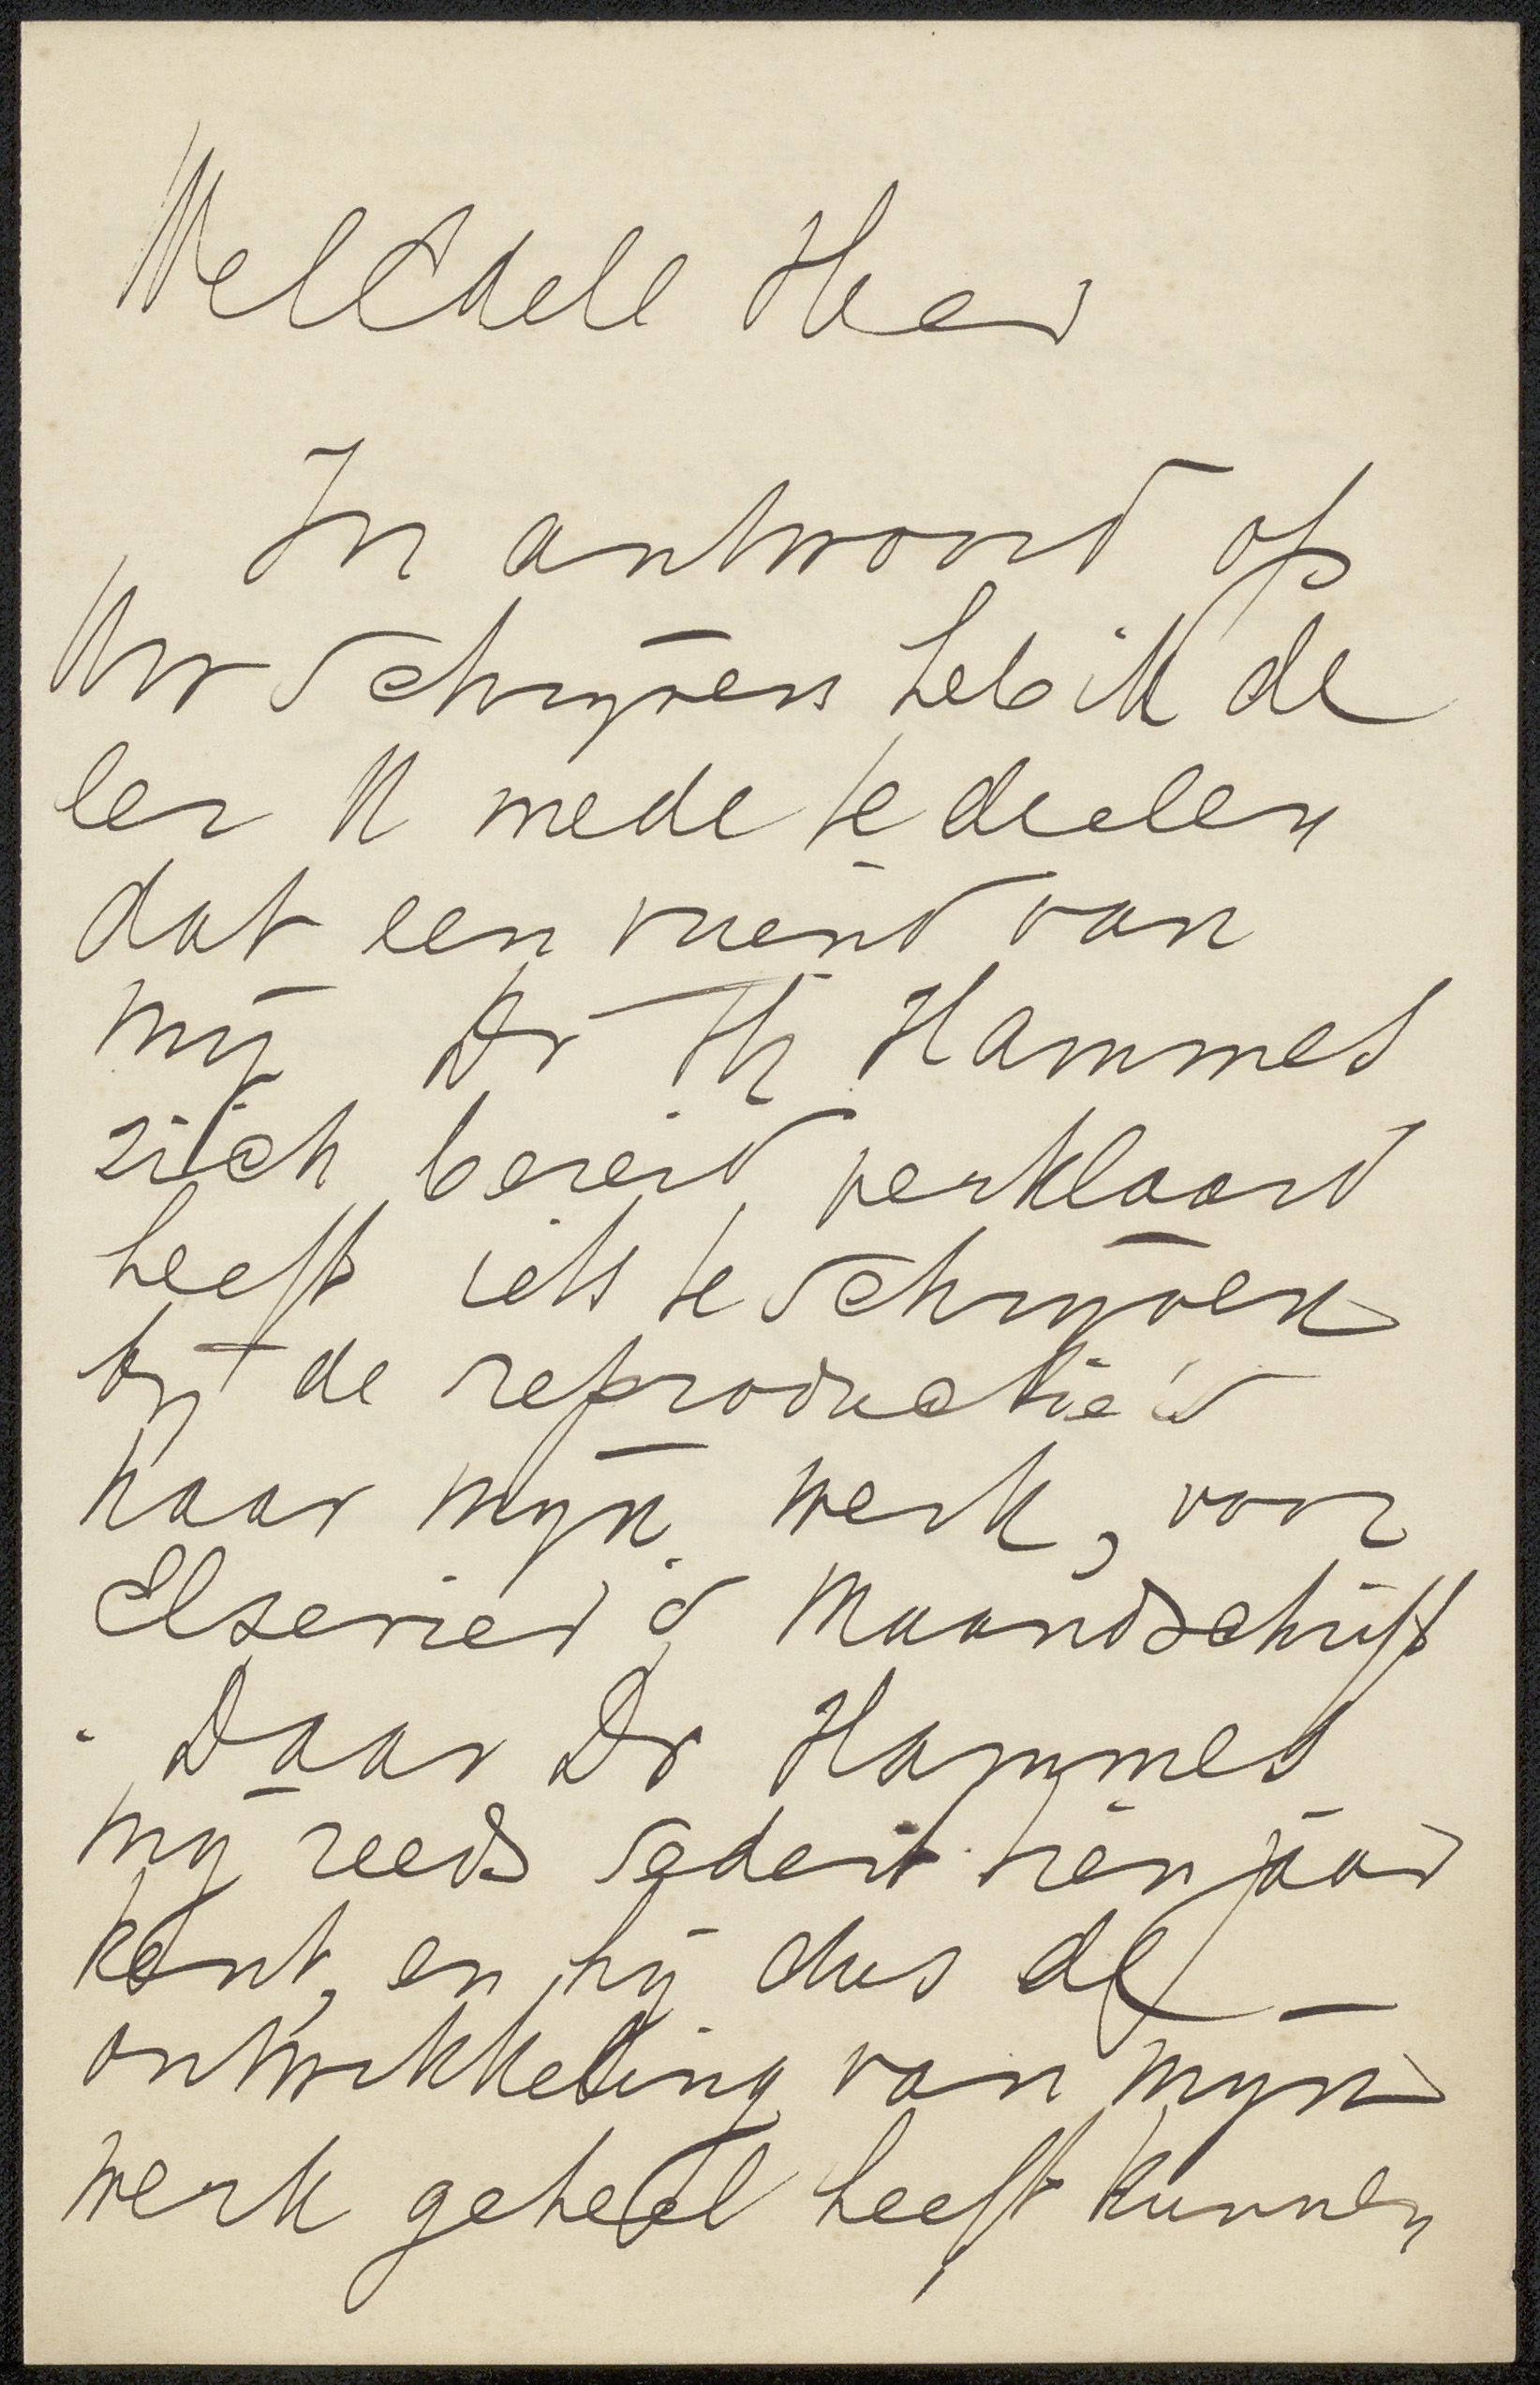 WelEdele Heer
In antwoord op
Uw schrijven heb ik de
eer U mede te deelen
dat een vriend van
mij Dr Th Hammes
zich bereid verklaard
heeft iets te schrijven
bij de reproductie's
naar mijn werk, voor
Elsevier's Maandschrift
. Daar Dr Hammes
mij reeds sedert tien jaar
kent, en hij dus de
ontwikkeling van mijn
werk geheel heeft kunnen